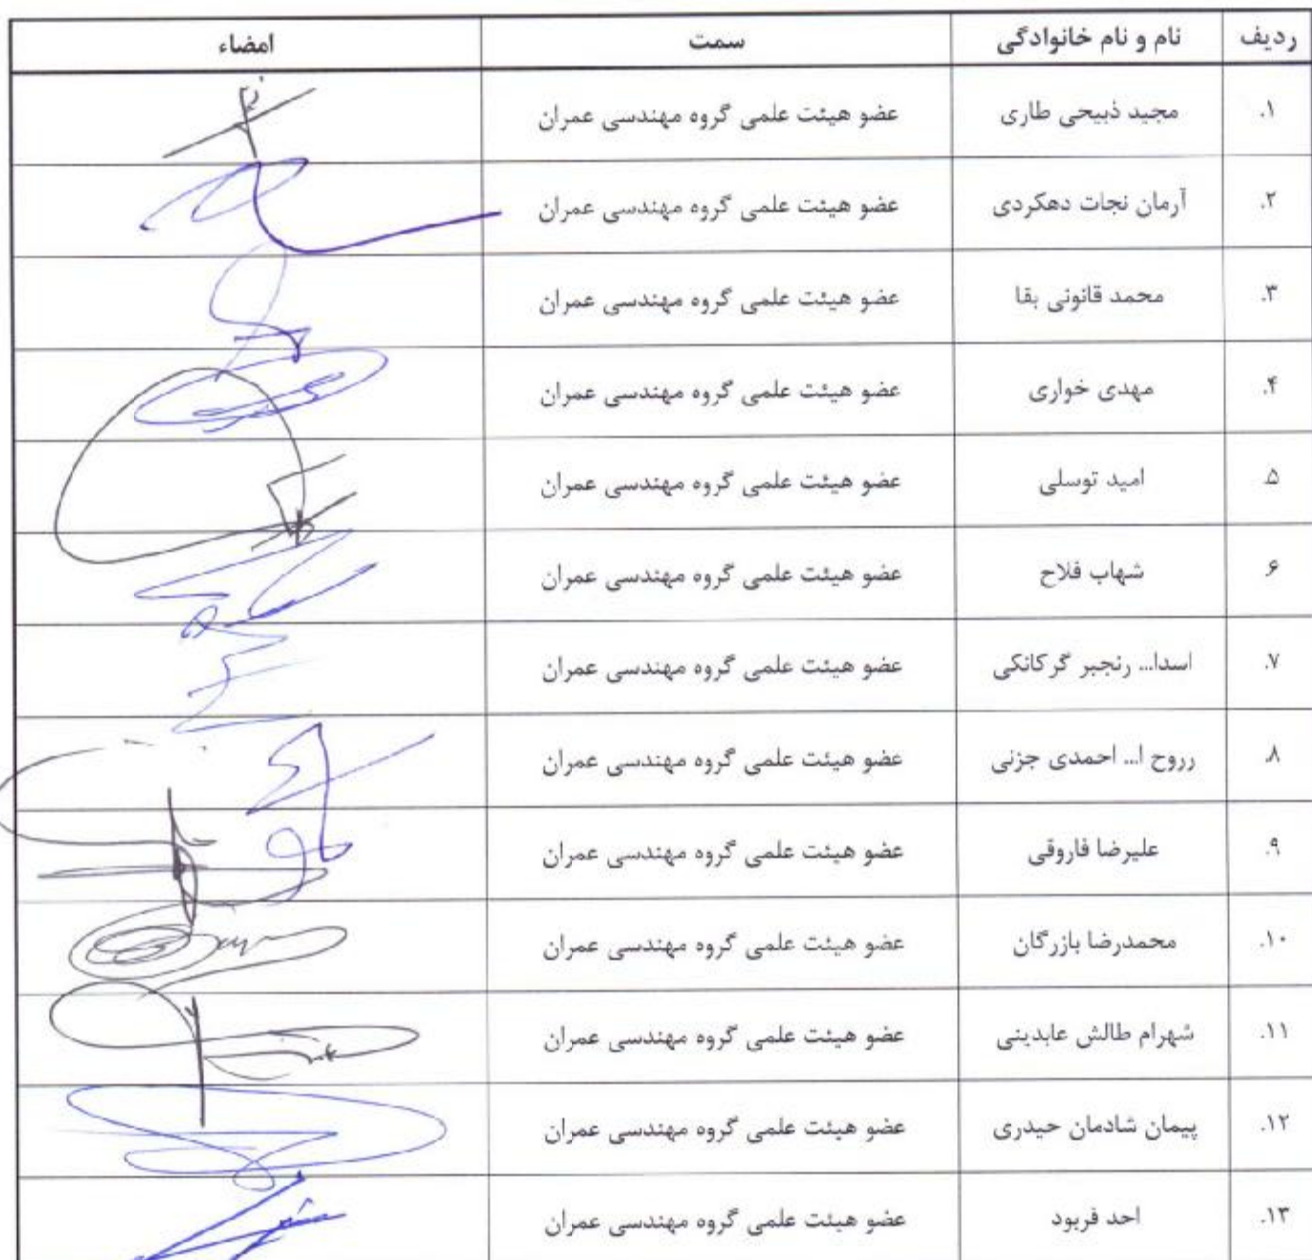 ردیف نام و نام خانوادگی سمت امضاء
۱. مجید ذبیحی طاری عضو هیئت علمی گروه مهندسی عمران
۲. آرمان نجات دهکردی عضو هیئت علمی گروه مهندسی عمران
۳. محمد قانونی بقا عضو هیئت علمی گروه مهندسی عمران
۴. مهدی خواری عضو هیئت علمی گروه مهندسی عمران
۵. امید توسلی عضو هیئت علمی گروه مهندسی عمران
۶ شهاب فلاح عضو هیئت علمی گروه مهندسی عمران
۷. اسدا... رنجبر گرکانکی عضو هیئت علمی گروه مهندسی عمران
۸. رروح ا... احمدی جزنی عضو هیئت علمی گروه مهندسی عمران
۹. علیرضا فاروقی عضو هیئت علمی گروه مهندسی عمران
۱۰. محمدرضا بازرگان عضو هیئت علمی گروه مهندسی عمران
۱۱. شهرام طالش عابدینی عضو هیئت علمی گروه مهندسی عمران
۱۲. پیمان شادمان حیدری عضو هیئت علمی گروه مهندسی عمران
۱۳. احد فربود عضو هیئت علمی گروه مهندسی عمران